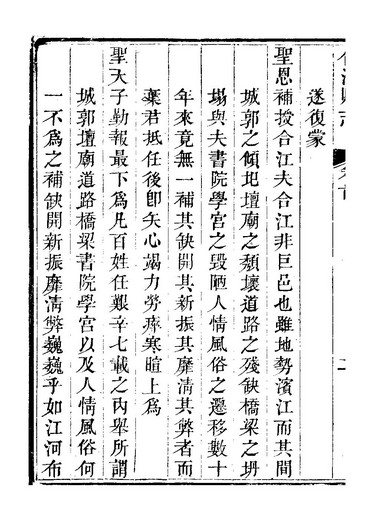 遂復蒙
聖恩補授合江夫合江非巨邑也雖地勢濱江而其間
城郭之傾圯壇廟之頹壞道路之殘缺橋梁之坍
塌與夫書院學宮之毀陋人情風俗之遷移數十
年來竟無一補其缺開其新振其靡清其弊者而
葉君抵任後卽矢心竭力勞瘁寒暄上爲
聖天子勤報最下爲凡百姓任艱辛七載之內舉所謂
城郭壇廟道路橋梁書院學宮以及人情風俗何
一不爲之補缺開新振靡淸弊巍巍乎如江河布